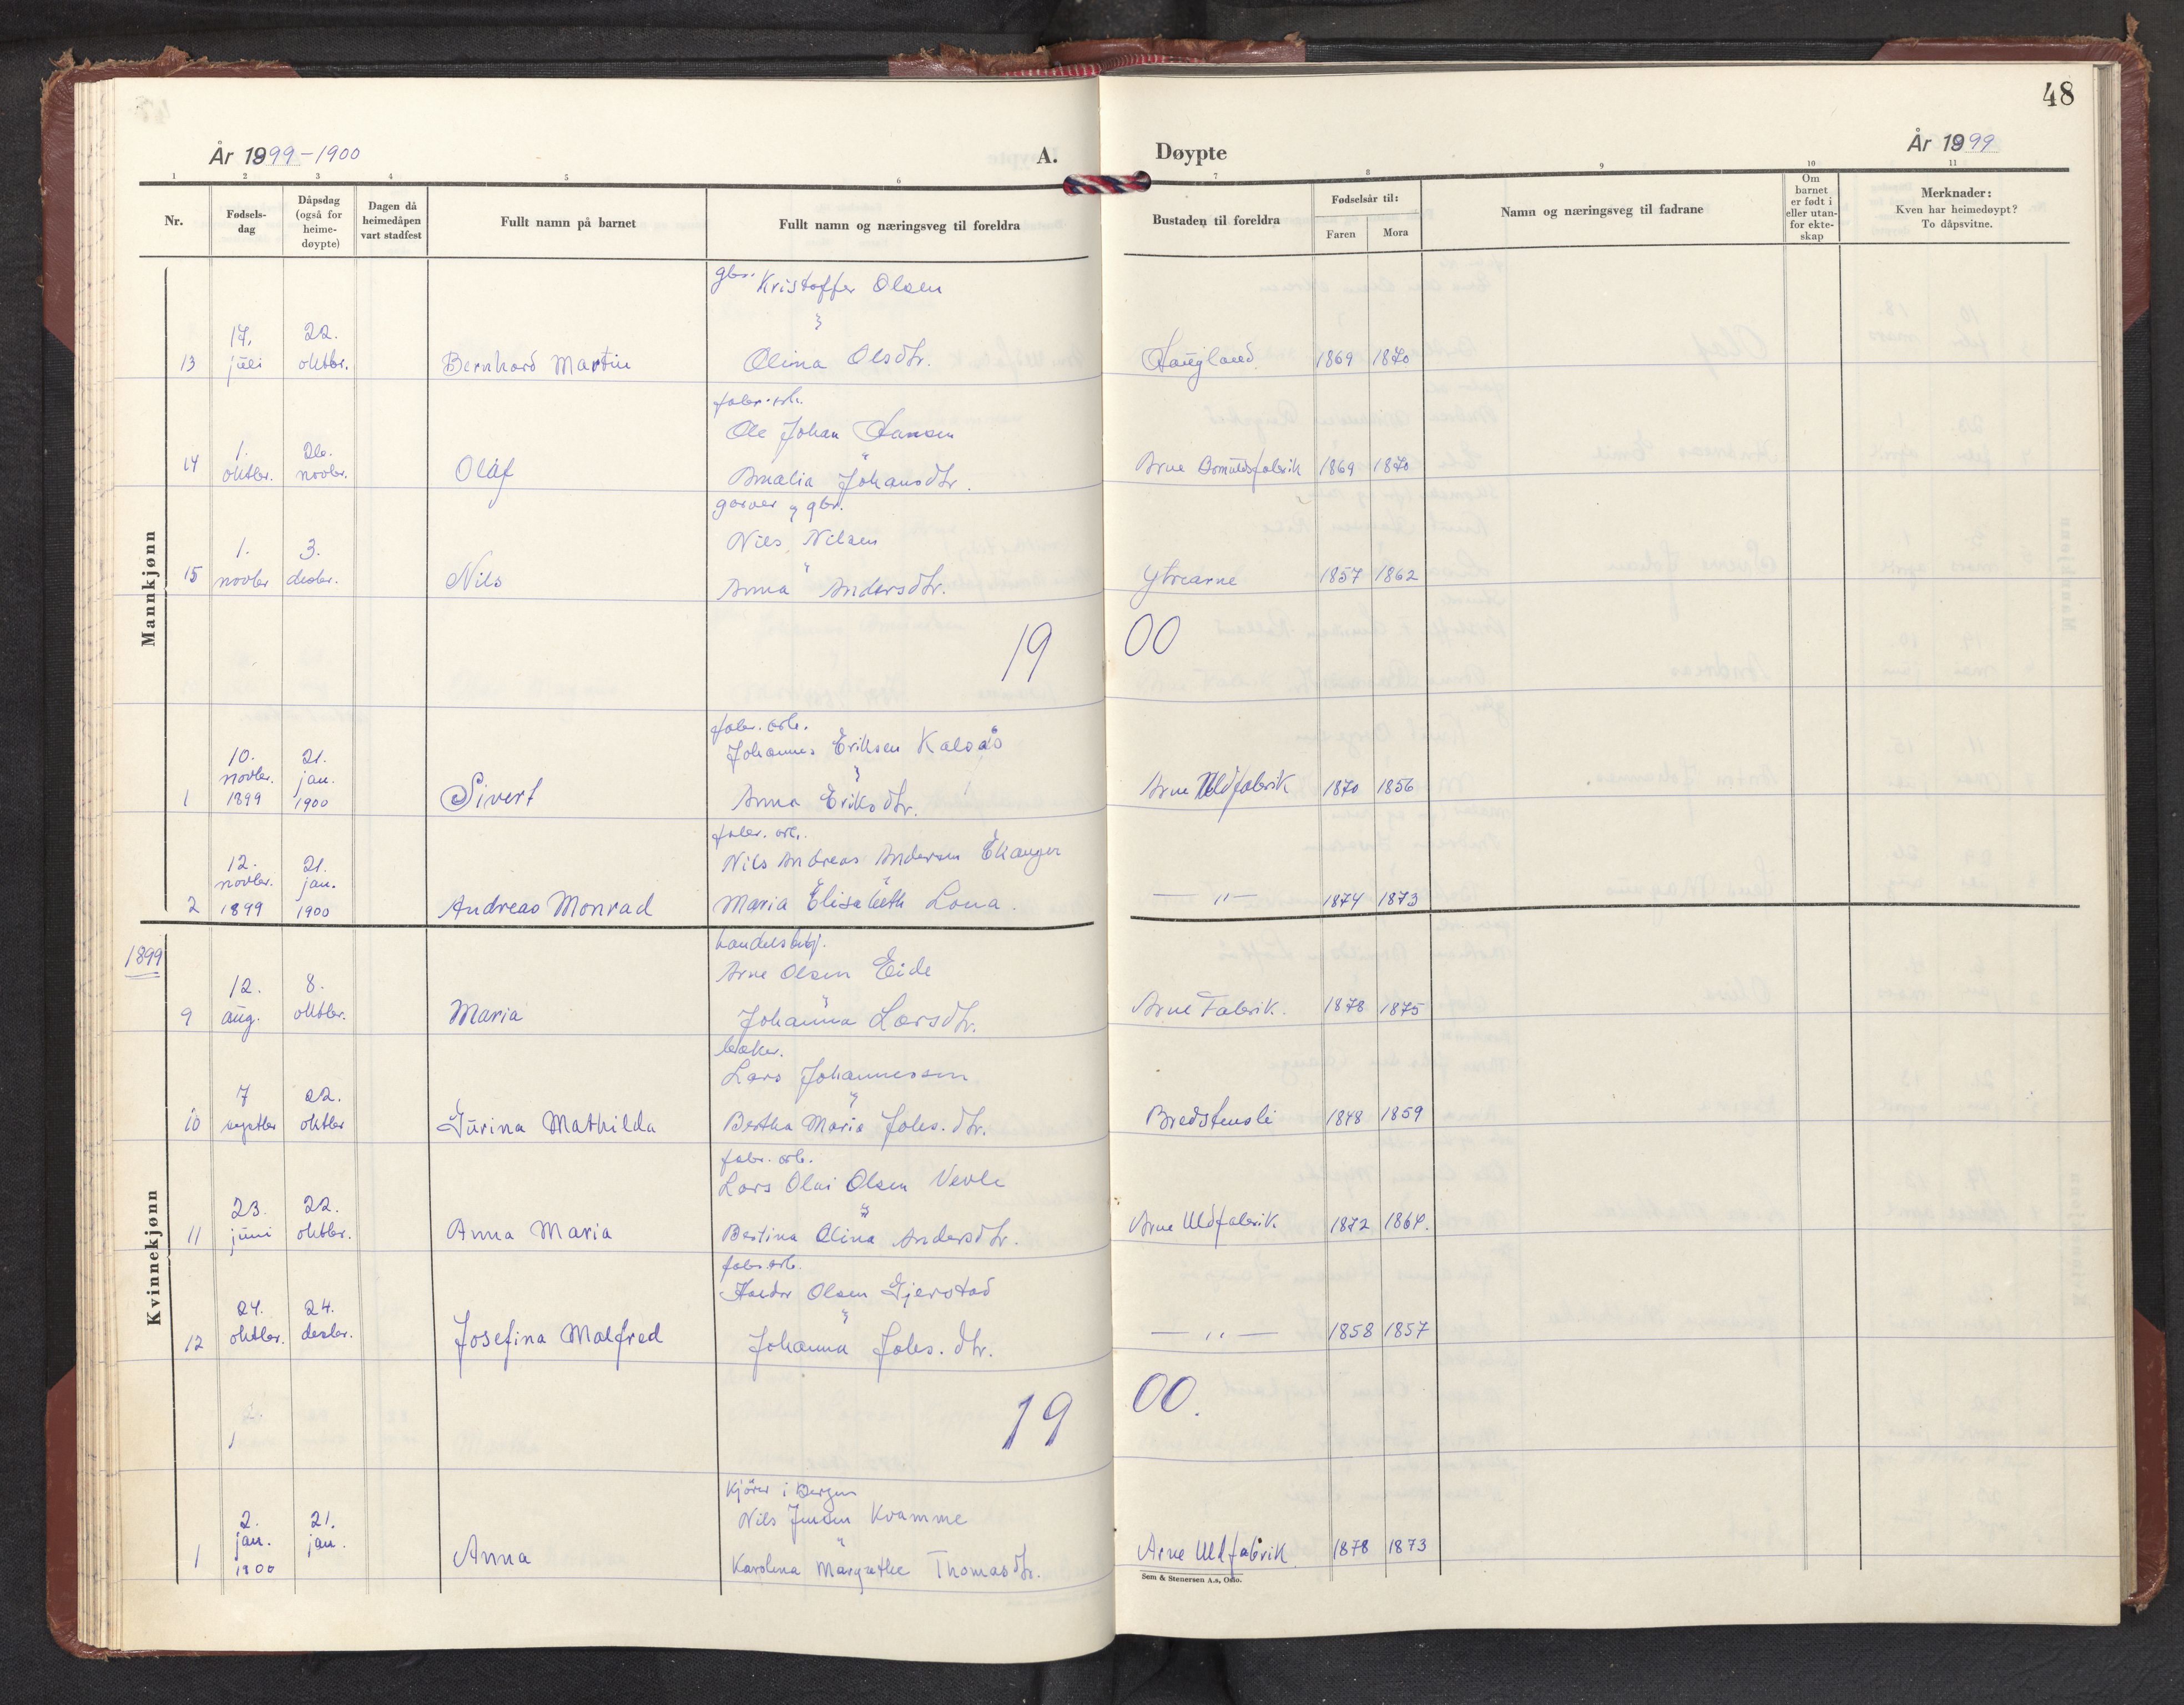 48
År 1899-1900
A.
Døypte
År 1899
1 2 3 4 5 6 7 8 9 10 11
Nr.
Fødsels-
dag
Dåpsdag
(også for
heime-
døypte)
Dagen då
heimedåpen
vart stadfest
Fullt namn på barnet
Fullt namn og næringsveg til foreldra
Bustaden til foreldra
Fødselsår til:
Faren Mora
Namn og næringsveg til fadrane
Om
barnet
er født i
eller utan-
for ekte-
skap
Merknader:
Kven har heimedøypt?
To dåpsvitne.
Mannkjønn
gbr. Kristoffer Olsen
17. 22.
13 juli oktbr. Bernhard Martin Olina Olsdtr. Haugland 1869 1870
fabr. arb.
Ole Johan Hansen
1. 26.
14 oktbr. novbr. Olaf Amalia Johansdtr. Arne Bomuldsfabrik 1869 1870
garver og gbr.
Nils Nilsen
1. 3.
15 novbr desbr. Nils Anna Andersdtr. Ytrearne 1857 1862
19 00
fabr. arb.
Johannes Eriksen Kalsås
10. 21.
novbr. jan.
1 1899 1900 Sivert Anna Eriksdtr. Arne Uldfabrik 1870 1856
fabr. arb.
Nils Andreas Andersen Ekanger
12. 21.
novbr. jan.
2 1899 1900 Andreas Monrad Maria Elisabeth Lona. — " — 1874 1873
Kvinnekjønn
1899
handelsbetj.
Arne Olsen Eide
12. 8.
9 aug. oktbr. Maria Johanna Larsdtr. Arne Fabrik. 1878 1875
baker.
Lars Johannessen
7 22.
10 septbr oktbr Gurina Mathilda Bertha Maria Johs. dtr. Bredstensli 1848 1859
fabr. arb.
Lars Olai Olsen Vevle
23. 22.
11 juni oktbr. Anna Maria Bertina Olina Andersdtr. Arne Uldfabrik 1872 1864.
fabr. arb.
Haldor Olsen Gjerstad
24. 24.
12 oktbr. desbr. Josefina Malfred Johanna Johs. dtr. — " — 1858 1857
19 00.
kjörer i Bergen
Nils Jensen Kvamme
2. 21.
jan. jan.
1 1900 Anna Karolina Margrethe Thomasdtr. Arne Uldfabrik 1878 1873
Sem & Stenersen A.s, Oslo.